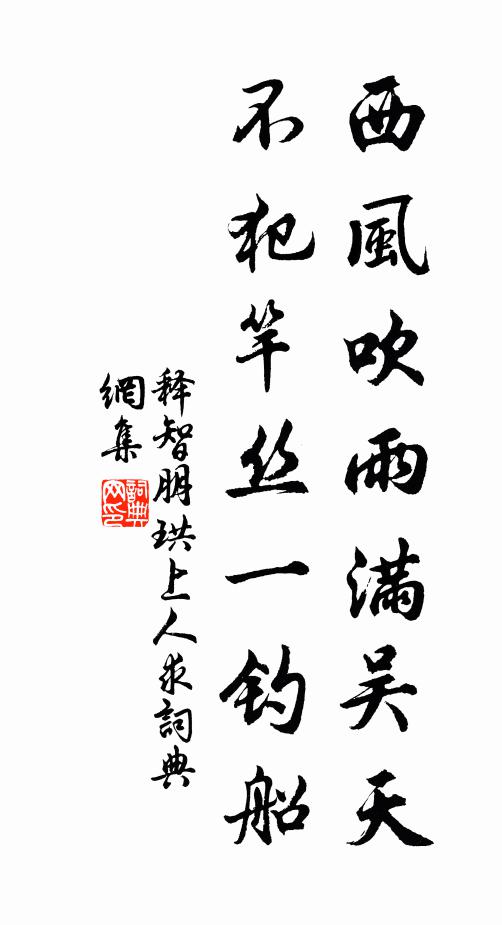 西風吹雨滿吴天
不犯竿丝一钓船
释智朋珙上人求詞典
網集
詞典
网印